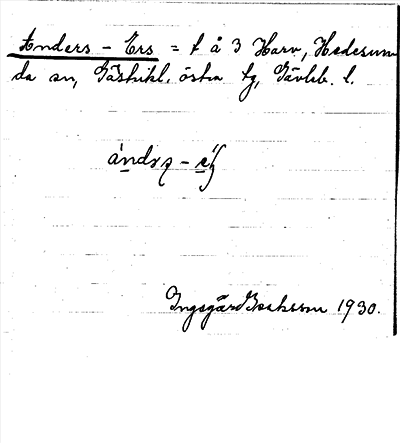 Anders - Ers = t å 3 Harv, Hedesun
da sn, Gästrikl. östra tg, Gävleb. l.
Ingegärd Isaksson 1930.